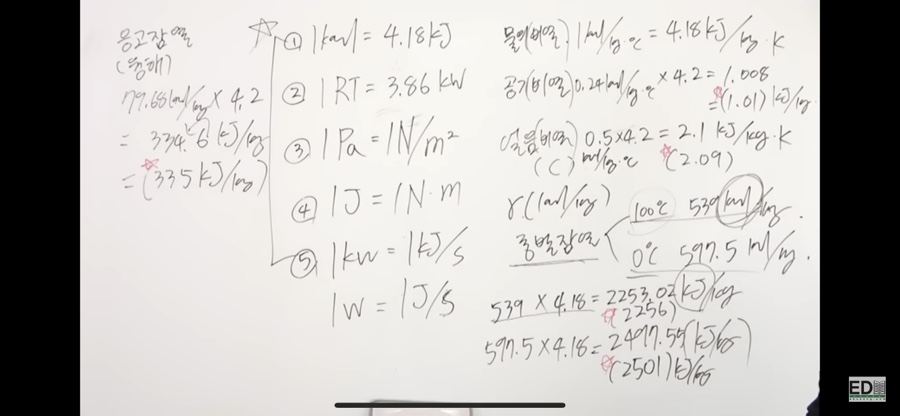 응고잠열
(융해)
79.68kcal/kg × 4.2
= 334.6 kJ/kg
= (335 kJ/kg)
① 1kcal = 4.18kJ
② 1RT = 3.86 kW
③ 1Pa = 1N/m²
④ 1J = 1N·m
⑤ 1kW = 1kJ/s
1W = 1J/s
물의(비열). 1kcal/kg·℃ = 4.18kJ/kg·K
공기(비열) 0.24kcal/kg·℃ × 4.2 = 1.008
= (1.01) kJ/kg
얼음(비열) 0.5×4.2 = 2.1 kJ/kg·K
(C) kcal/kg·℃ (2.09)
r.(kcal/kg)
증발잠열
100℃ 539 kcal/kg.
0℃ 597.5 kcal/kg.
539 × 4.18 = 2253.02 kJ/kg
(2256)
597.5 × 4.18 = 2497.55(kJ/kg)
(2501) kJ/kg
ED